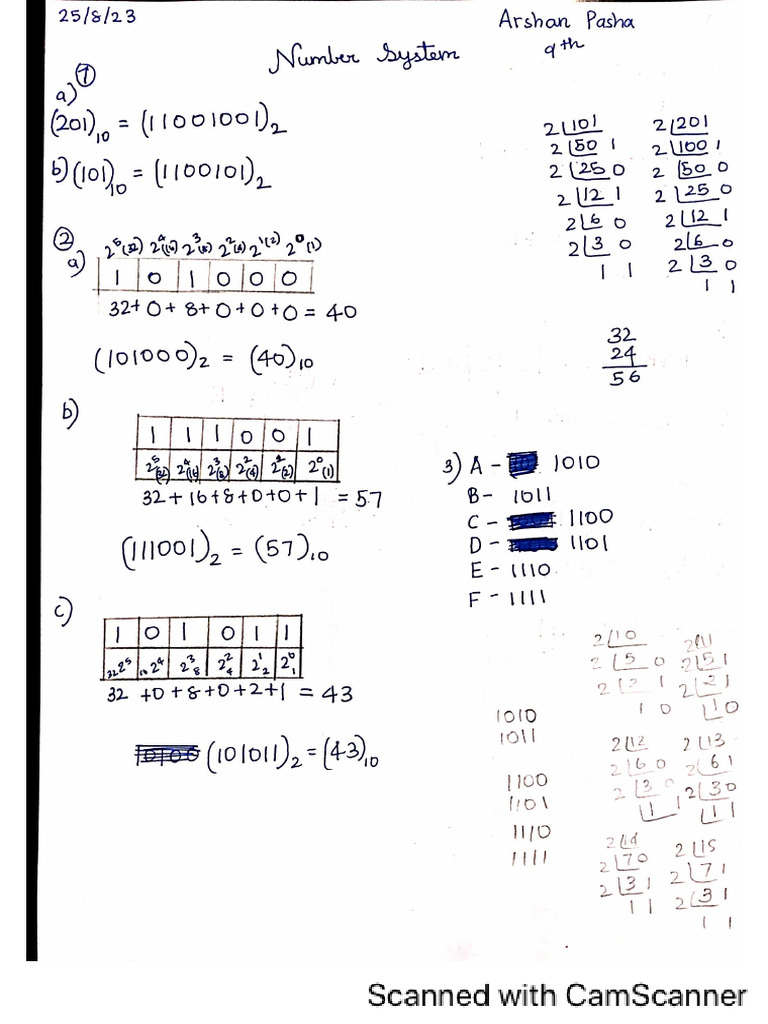 25/8/23
Arshan Pasha
9th
Number System
①
a)
(201)₁₀ = (11001001)₂
b) (101)₁₀ = (1100101)₂
2 101
2 50 1
2 25 0
2 12 1
2 6 0
2 3 0
1 1
2 201
2 100 1
2 50 0
2 25 0
2 12 1
2 6 0
2 3 0
1 1
②
a)
2⁵(32) 2⁴(16) 2³(8) 2²(4) 2¹(2) 2⁰(1)
1 0 1 0 0 0
32+0+8+0+0+0 = 40
(101000)₂ = (40)₁₀
32
24
56
b)
1 1 1 0 0 1
2⁵(32) 2⁴(16) 2³(8) 2²(4) 2¹(2) 2⁰(1)
32+16+8+0+0+1 = 57
(111001)₂ = (57)₁₀
c)
1 0 1 0 1 1
32 2⁵ 16 2⁴ 2³ 8 2² 4 2¹ 2 2⁰ 1
32 +0+8+0+2+1 = 43
(101011)₂ = (43)₁₀
3) A - 1010
B - 1011
C - 1100
D - 1101
E - 1110
F - 1111
1010
1011
1100
1101
1110
1111
2 10
2 5 0
2 2 1
1 0
2 11
2 5 1
2 2 1
1 0
2 12
2 6 0
2 3 0
1 1
2 13
2 6 1
2 3 0
1 1
2 14
2 7 0
2 3 1
1 1
2 15
2 7 1
2 3 1
1 1
Scanned with CamScanner